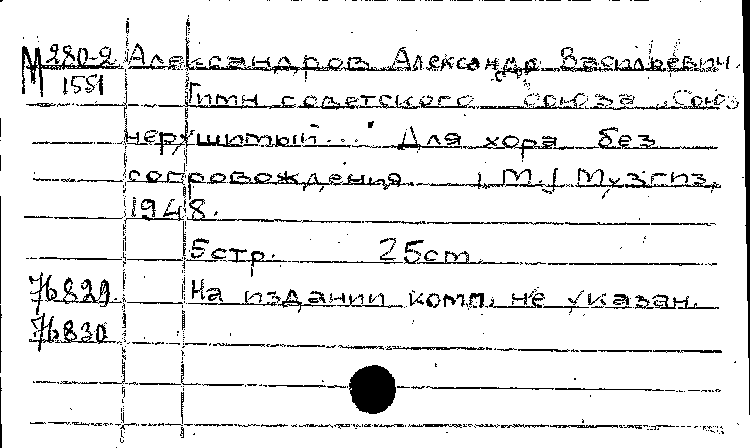 М 280-2 Александров Александр Васильевич.
1551
Гимн советского союза "Союз
нерушимый..." Для хора без
сопровождения. [М.] Музгиз,
1948.
5стр. 25см.
76829 На издании комп. не указан.
76830